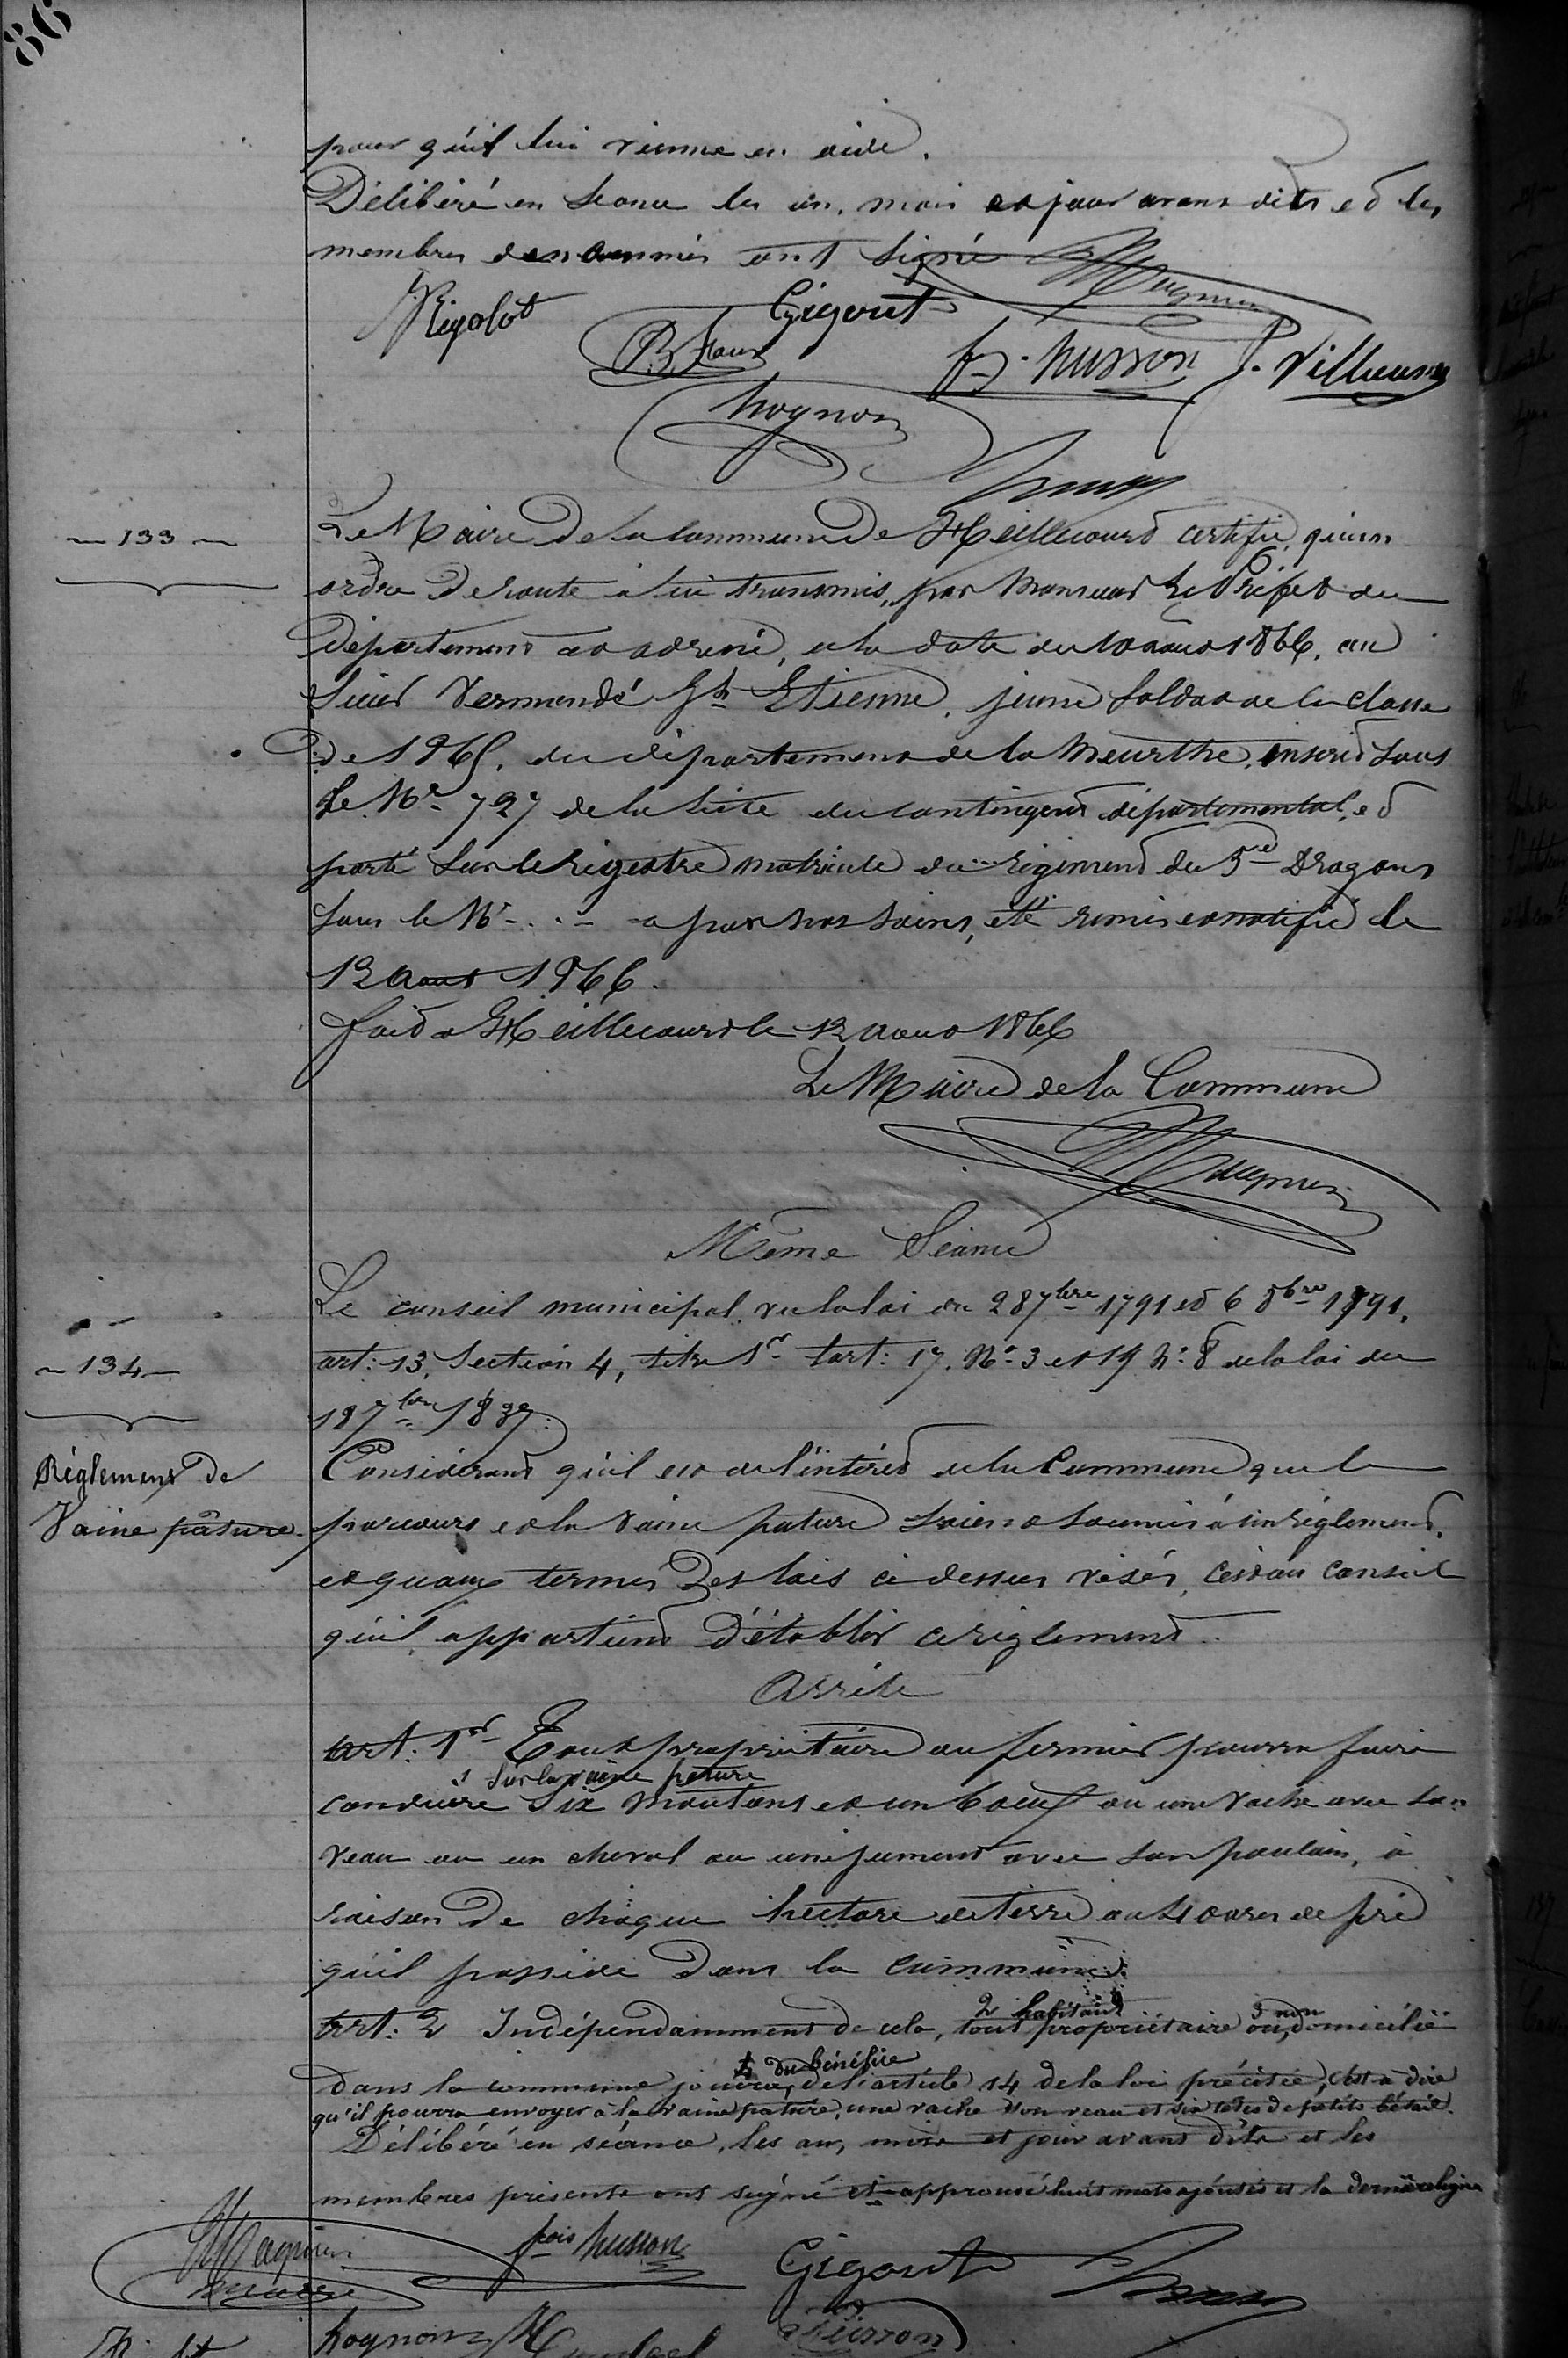 86
pour qu'il lui vienne en aide.
Délibéré en séance les an, mois et jour avant dits et les
membres dénommés ont signé
Rigolot
Gigout
B.
fs. husson
J. Villaume
hognon
133
Le Maire de la Commune de Heillecourt certifie, qu'un
ordre de route à lui transmis, par Monsieur Le Préfet du
Département et adressé, à la date du 10 aout 1866, au
Sieur Vermandé Etienne, jeune Soldat de la classe
de 1865, du département de la Meurthe, inscrit sous
Le No 727 de la liste du contingent départemental, et
porté sur le registre matricule du régiment du 5me Dragons
sous le No - . - a par nos soins, été remis et notifié le
12 aout 1866.
fait à Heillecourt le 12 aout 1866
Le Maire de la Commune
Même Séance
134
Le conseil municipal, vu la loi du 28 7bre 1791 et 6 8bre 1791,
art: 13, Section 4, titre 1er l'art: 17, No 3 et 19 No 8 de la loi du
18 7bre 1837.
Règlement de
Vaine pâture.
Considérant qu'il est de l'intéret de la Commune que le
parcours et la Vaine pature soient soumis à un règlement,
et qu'aux termes des lois ci dessus visés, c'est au conseil
qu'il appartient d'établir ce règlement.
Arrête
art: 1er Tout propriétaire ou fermier pourra faire
1 sur la vaine pature
conduire six moutons et un boeuf ou une vache avec son
veau ou un cheval ou une jument avec son poulain, à
raison de chaque hectare de terre ou ares de pré
qu'il possède dans la commune.
2 habitant 3 non
Art: 2 Indépendamment de cela, tout propriétaire ou domicilié
4 du bénéfice
dans la commune jouira, de l'article 14 de la loi précitée, c'est à dire
qu'il pourra envoyer à la vaine pature, une vache son veau et six têtes de petits bétail.
Délibéré en séance, les an, mois et jour avant dits et les
membres présents ont signé et approuvé huit mots ajoutés et la dernière ligne
maire
fçois husson
Gigout
hognon
husson